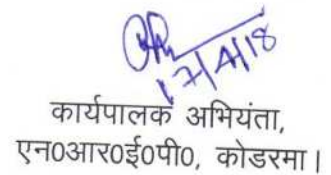 17/4/18
कार्यपालक अभियंता,
एन0आर0ई0पी0, कोडरमा।